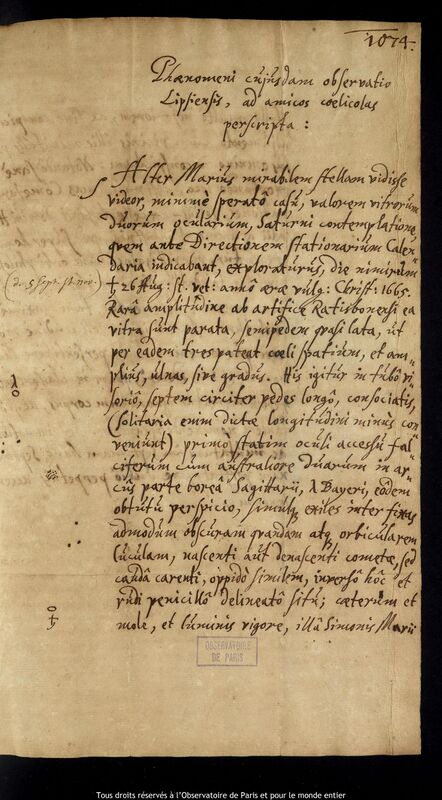 1074.
Phænomeni cujusdam observatio
Lipsiensis, ad amicos cœlicolas
perscripta:
Alter Marius mirabilem stellam vidisse
videor, minimè speratô casu, valorem vitrorum
duorum ocularium, Saturni contemplatione
quem ante Directionem stationarium Calen-
daria indicabant, exploraturus, die nimirùm
(d. 5 Sept. st. nov.)
† 26 Aug: st. vet: annô eræ vulg: Christ: 1665.
Rarâ amplitudine ab artifice Ratisbonensi ea
vitra sunt parata, semipedem quasi lata, ut
per eadem tres pateat cœli spatium, et am-
plius, ulnas, sive gradus. His igitur in tubô vi-
sorio, septem circiter pedes longô, consociatis,
(solitaria enim dictæ longitudini minùs con
veniunt) primô statim oculi accessû fal-
citerum cum australiore duarum in ar-
cus parte boreâ Sagittarii, λ Bayeri, eôdem
obtutû perspicio, simulq exiles inter fixas
admodum obscuram quandam atq orbicularem
luculam, nascenti aut denascenti cometæ, sed
caudâ carenti, oppidò similem, inversô hôc et
rudi penicillô delineatô sitû; cæterùm et
mole, et luminis vigore, illâ Simonis Marii
λ
♄
OBSERVATOIRE
DE PARIS
Tous droits réservés à l'Observatoire de Paris et pour le monde entier